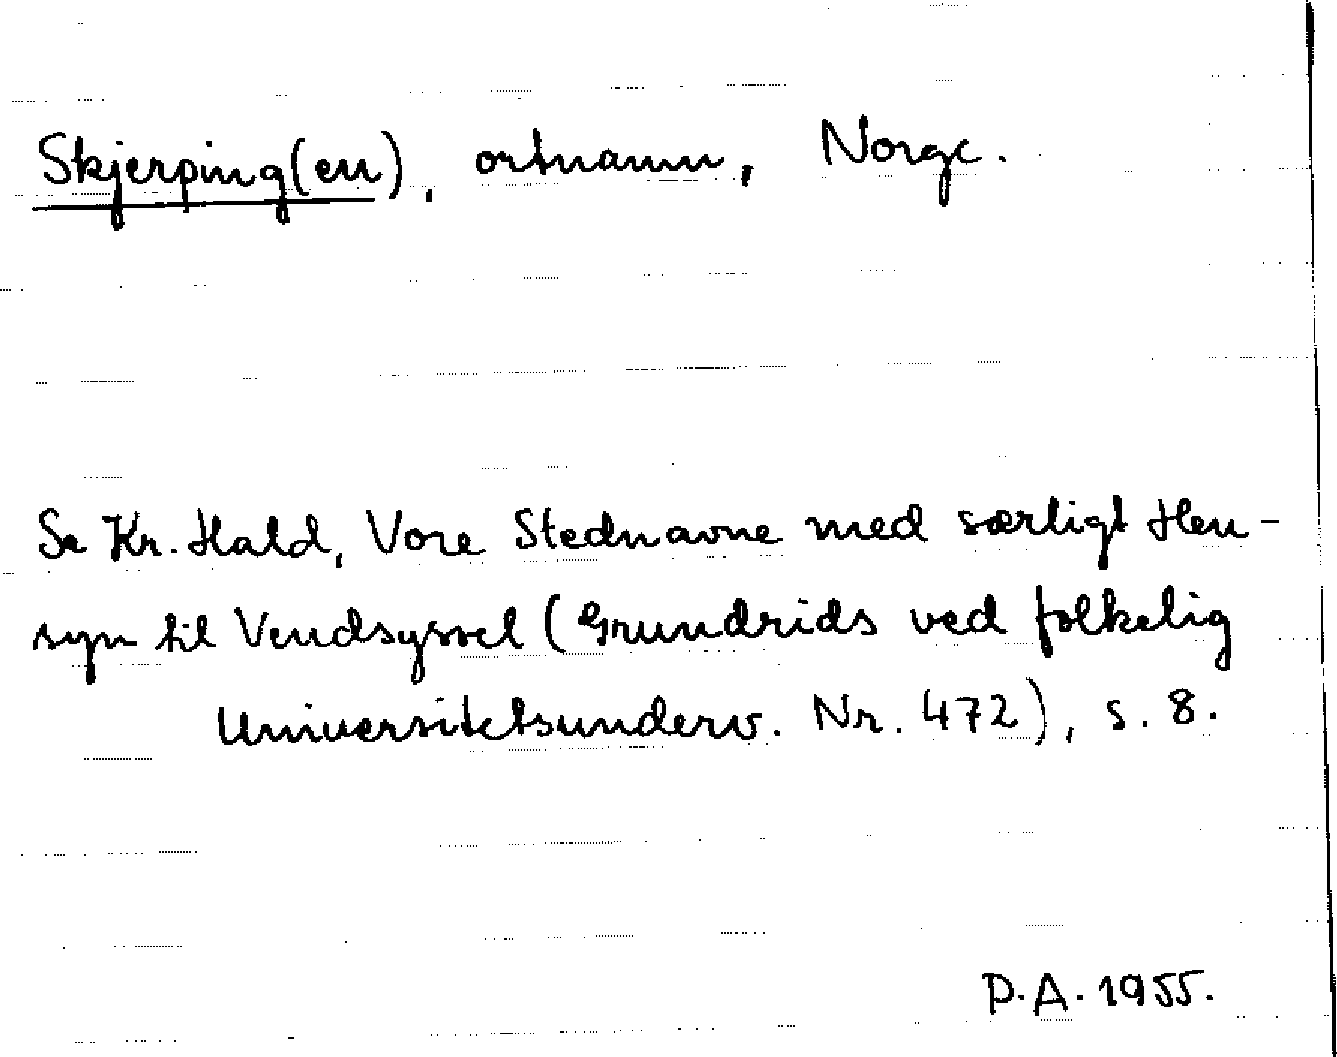 Skjerping(en), ortnamn, Norge.
Se Kr. Hald, Vore Stednavne med særligt Hen-
syn til Vendsyssel (Grundrids ved folkelig
Universitetsunderv. Nr. 472), s. 8.
P.A. 1955.